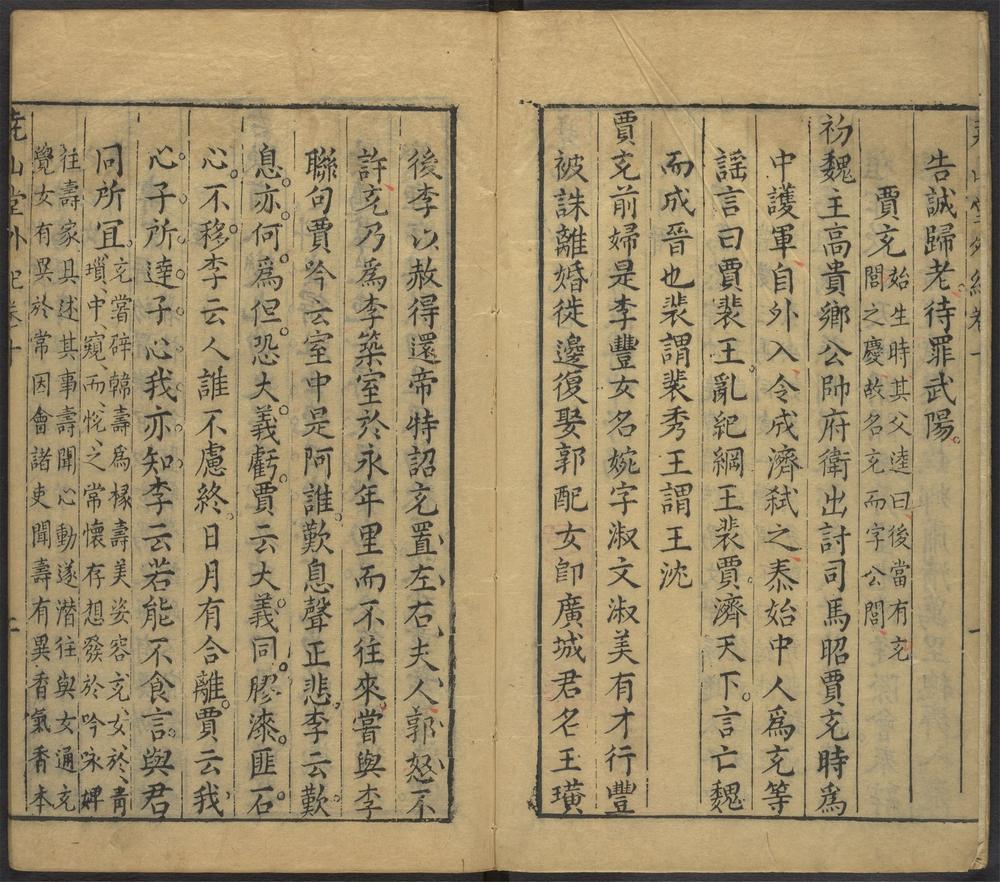 告誠歸老待罪武陽
賈充始生時其父逵曰後當有充
閭之慶故名充而字公閭
初魏主高貴鄉公帥府衛出討司馬昭賈充時爲
中護軍自外入令成濟弒之泰始中人爲充等
謡言曰賈裴王亂紀綱王裴賈濟天下言亡魏
而成晉也裴謂裴秀王謂王沈
賈充前婦是李豐女名婉字淑文淑美有才行豐
被誅離婚徙邊復娶郭配女卽廣城君名王璜
後李以赦得還帝特詔充置左右夫人郭怒不
許充乃爲李築室於永年里而不往來嘗與李
聯句賈吟云室中是阿誰歎息聲正悲李云歎
息亦何爲但恐大義虧賈云大義同膠漆匪石
心不移李云人誰不慮終日月有合離賈云我
心子所達子心我亦知李云若能不食言與君
同所冝充嘗辟韓壽爲椽壽美姿容充女於青
瑣中窺而悅之常懷存想發於吟咏婢
往壽家具述其事壽聞心動遂潛往與女通充
覺女有異於常因會諸吏聞壽有異香氣香本
堯山堂外紀卷十